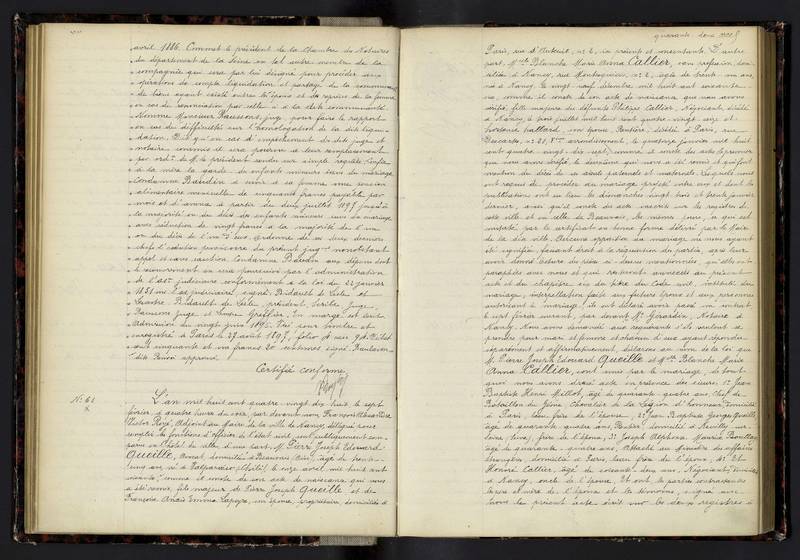 quarante deux
avril 1886. Commet le président de la Chambre des Notaires
du département de la Seine ou tel autre membre de la
compagnie qui sera par lui désigné pour procéder aux
opérations de compte liquidation et partage de la communauté
de biens ayant existé entre les époux et des reprises de la femme
en cas de renonciation par celle ci à la dite communauté.
Nomme Monsieur Paussons, juge, pour faire le rapport
en cas de difficultés sur l'homologation de la dite liqui-
dation. Dit qu'en cas d'empêchement des dits juge et
notaire commis il sera pourvu à leur remplacement
par ordce de M. le président rendue sur simple requête. Confie
à la mère la garde des enfants mineurs issus du mariage.
Condamne Baudin à servir à sa femme une pension
alimentaire mensuelle de cinquante francs payable par
mois et d'avance à partir du deux juillet 1897 jusqu'à
la majorité ou du décès des enfants mineurs issus du mariage
avec réduction de vingt francs à la majorité de l'un
ou du décès de l'un d'eux. Ordonne de ces deux derniers
chefs l'exécution provisoire du présent jugt nonobstant
appel et sans caution. Condamne Baudin aux dépens dont
le recouvrement en sera poursuivi par l'administration
de l'asstce judiciaire conformément à la loi du 22 janvier
1851
président,
juge et Greffier. En marge est écrit
Admission du vingt juin 1895. Visé pour timbre et
enregistré à Paris le 27 août 1897, folio
cent cinquante et un francs 20 centimes signé:
Certifié conforme
No 62
L'an mil huit cent quatre vingt dix huit, le sept
février, à quatre heures du soir, par devant nous François
Victor Royé, Adjoint au Maire de la ville de Nancy délégué pour
remplir les fonctions d'officier de l'état civil, ont publiquement com-
paru en l'hôtel de ville, d'une part, M. Pierre Joseph Edouard
Queille, avocat, domicilié à Beauvais, Oise, âgé de trente
cinq ans, né à Valparaiso (Chili) le onze avril mil huit cent
soixante, comme il conste de son acte de naissance qui nous
a été remis, fils majeur de Pierre Joseph Queille et de
Françoise Anaïs Emma Lapeyre, son épouse, propriétaires, domiciliés à
Paris, rue d'Auteuil, no 2, ici présents et consentants. D'autre
part, Mlle Blanche Marie Anna Callier, sans profession, domi-
ciliée à Nancy, rue Montesquieu, no 2, âgée de trente un ans,
née à Nancy, le vingt neuf décembre mil huit cent soixante
six, comme il conste de son acte de naissance, que nous avons
vérifié, fille majeure des défunts Philippe Callier, Négociant, décédé
à Nancy, le trois juillet mil huit cent quatre vingt onze et
Hortense Paillard, son épouse, Rentière, décédée à Paris, rue
Descartes, no 21, Vme arrondissement, le quatorze janvier mil huit
cent quatre vingt dix sept, comme il conste des actes le premier
que nous avons vérifié, le deuxième qui nous a été remis et qui font
mention du décès de ses aïeuls paternels et maternels. Lesquels nous
ont requis de procéder au mariage projeté entre eux et dont les
publications ont eu lieu les dimanches vingt trois et trente janvier
dernier, ainsi qu'il conste des actes inscrits sur les registres de
cette ville et en celle de Beauvais, les mêmes jours, ce qui est
constaté par le certificat en bonne forme délivré par le Maire
de la dite ville. Aucune opposition au mariage ne nous ayant
été signifiée, faisant droit à la réquisition des parties, après leur
avoir donné lecture des pièces ci-dessus mentionnées qu'elles ont
paraphées avec nous et qui resteront annexées au présent
acte et du chapitre six du titre du Code civil, intitulé du
mariage, interpellation faite aux futurs époux et aux personnes
autorisant le mariage, ils ont déclaré avoir passé un contrat
le sept février courant, par devant Me Gérardin, Notaire à
Nancy. Nous avons demandé aux requérants s'ils veulent se
prendre pour mari et femme et chacun d'eux ayant répondu
séparément et affirmativement, déclarons au nom de la loi que
M. Pierre Joseph Edouard Queille et Mlle Blanche Marie
Anna Callier, sont unis par le mariage, de tout
quoi nous avons dressé acte en présence des sieurs; 1o Jean
Baptiste Henri Millot, âgé de quarante quatre ans, Chef de
Bataillon du Génie, Chevalier de la Légion d'honneur, domicilié
à Paris, beau frère de l'épouse, 2o Jean Baptiste Georges Queille
âgé de quarante quatre ans, Rentier, domicilié à Neuilly sur
frère de l'époux, 3o Joseph Alphonse Maurice
âgé de quarante quatre ans, Attaché au Ministère des affaires
étrangères, domicilié à Paris, beau frère de l'époux, 4o Et
Honoré Callier, âgé de soixante deux ans, Négociant, domicilié
à Nancy, oncle de l'épouse. Et ont les parties contractantes
les père et mère de l'époux et les témoins, signé avec
nous le présent acte écrit sur les deux registres à